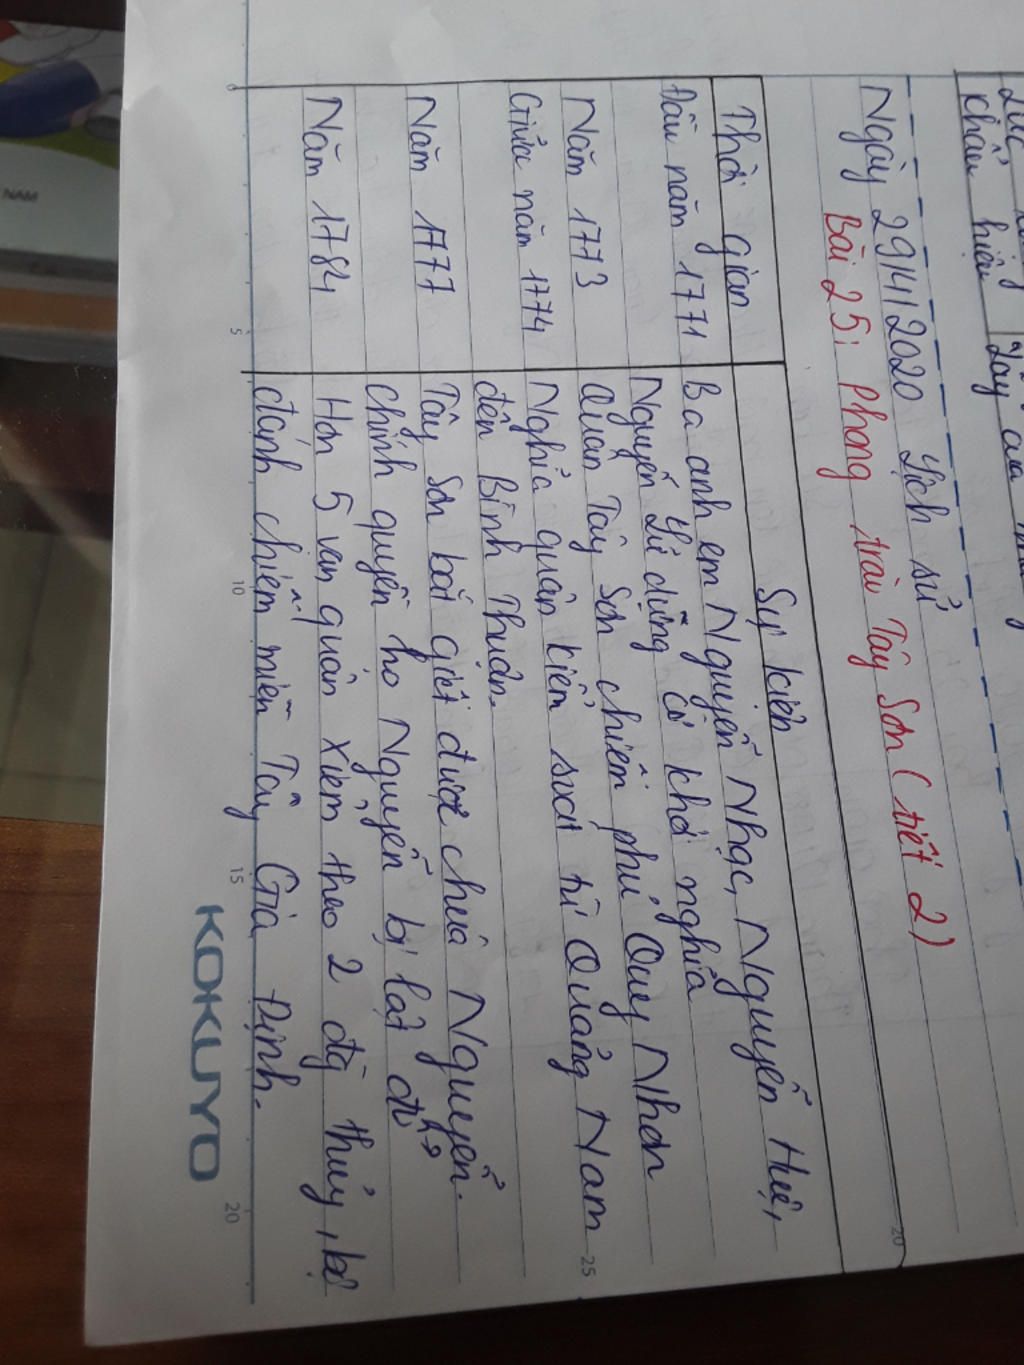 khẩu hiệu
của
Ngày 29/4/2020 Lịch sử
Bài 25: Phong trào Tây Sơn (tiết 2)
Thời gian Sự kiện
Đầu năm 1771 Ba anh em Nguyễn Nhạc, Nguyễn Huệ,
Nguyễn Lữ dựng cờ khởi nghĩa
Năm 1773 Quân Tây Sơn chiếm phủ Quy Nhơn
Giữa năm 1774 Nghĩa quân kiểm soát từ Quảng Nam
đến Bình Thuận.
Năm 1777 Tây Sơn bắt giết được chúa Nguyễn.
Chính quyền họ Nguyễn bị lật đổ
Năm 1784 Hơn 5 vạn quân Xiêm theo 2 đg thủy, bộ
đánh chiếm miền Tây Gia Định.
5 10 15 20
20
25
KOKUYO
NAM